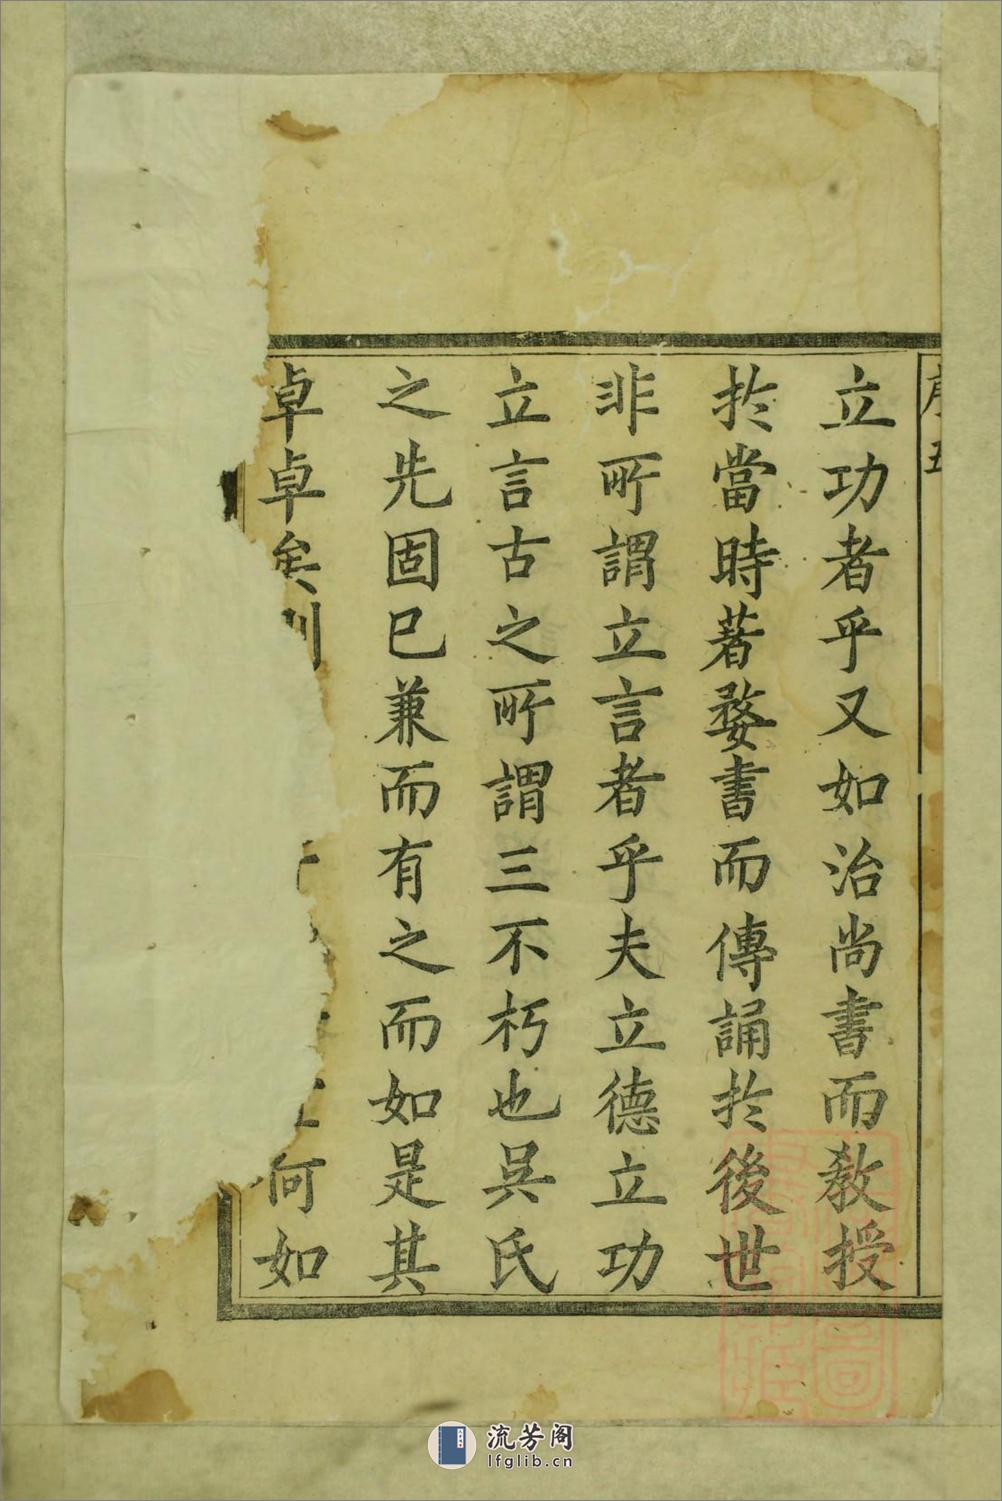 序五
立功者乎又如治尚書而教授
扵當時著婺書而傳誦扵後世
非所謂立言者乎夫立德立功
立言古之所謂三不朽也吳氏
之先固已兼而有之而如是其
卓卓矣
何如
流芳阁
lfglib.cn